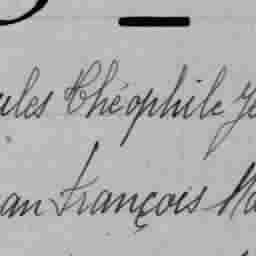 ules Théophile Je
an François Ma